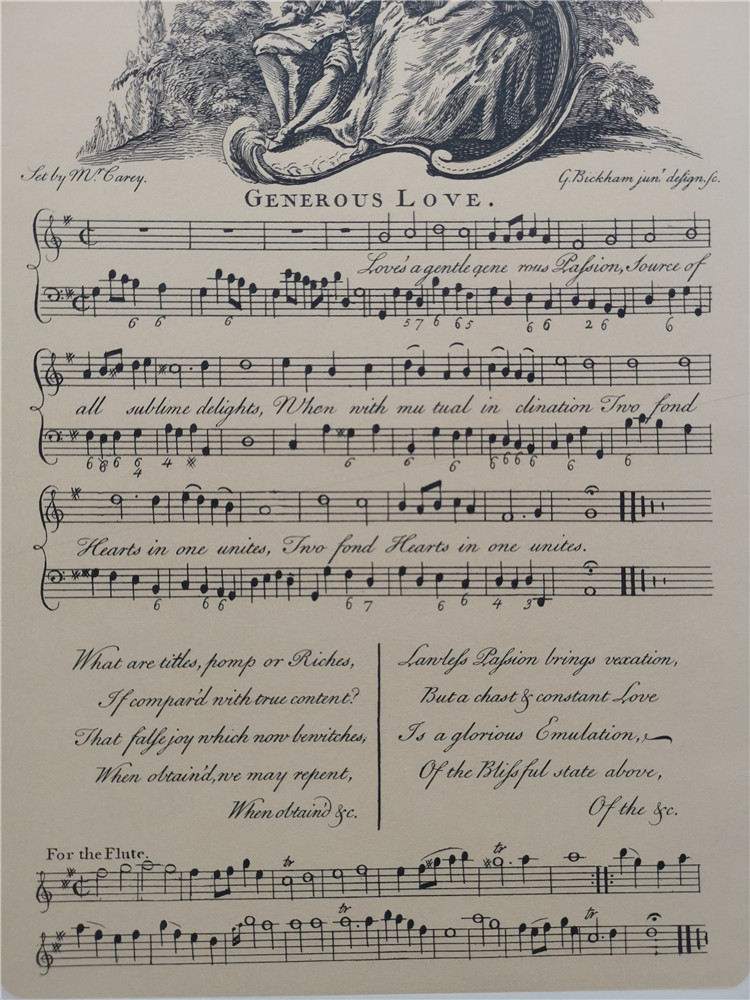 Set by Mr. Carey.
G. Bickham junr. design. sc.
GENEROUS LOVE.
Love's a gentle gene rous Passion, Source of
6 6 6 5 7 6 6 5 6 6 2 6 6
all sublime delights, When with mu tual in clination Two fond
6 6 6 6 4 4 6 6 6 6 6 6 6 6
Hearts in one unites, Two fond Hearts in one unites.
6 6 6 6 7 6 6 4 3
What are titles, pomp or Riches,
If compar'd with true content?
That false joy which now bewitches,
When obtain'd, we may repent,
When obtain'd &c.
Lawless Passion brings vexation,
But a chast & constant Love
Is a glorious Emulation,
Of the Blissful state above,
Of the &c.
For the Flute.
tr tr
tr tr